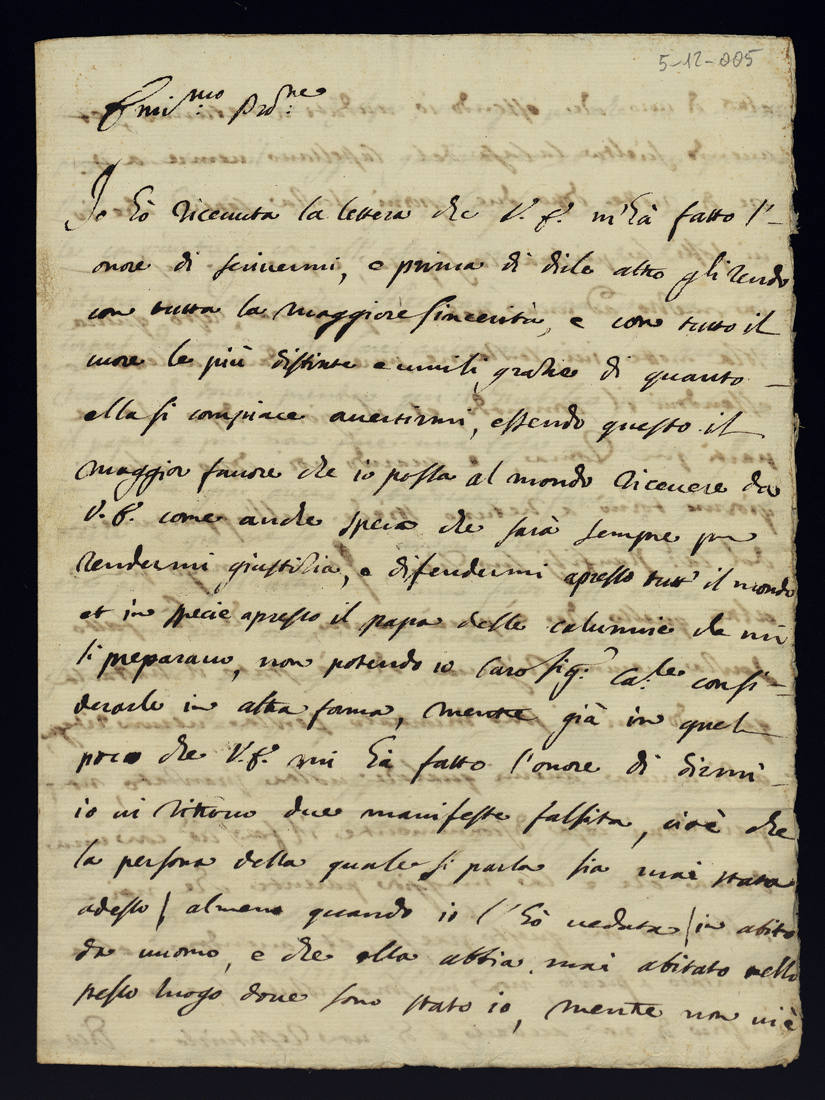 5-12-005
Emi.mo Prō.ne
Io hò riceuuta la lettera che V. E. m'hà fatto l'-
onore di scriuermi, e prima di dirle altro gli rendo
con tutta la maggiore sincerità, e con tutto il
cuore le più distinte e umili grazie di quanto
ella si compiace auertirmi, essendo questo il
maggior fauore che io possa al mondo riceuere da
V. E. come anche spero che sarà sempre per
rendermi giustizia, e difendermi apresso tutt' il mondo
et in specie apresso il papa delle calunnie che mi
si preparano, non potendo io Caro Sig.r Ca.le consi-
derarle in altra forma, mentre già in quel
poco che V. E. mi hà fatto l'onore di dirmi-
io ui ritrouo due manifeste falsità, cioè che
la persona della quale si parla sia mai stata
adesso / almeno quando io l'hò ueduta / in abito
da uomo, e che ella abbia mai abitato nello
stesso luogo doue sono stato io, mentre non ui è